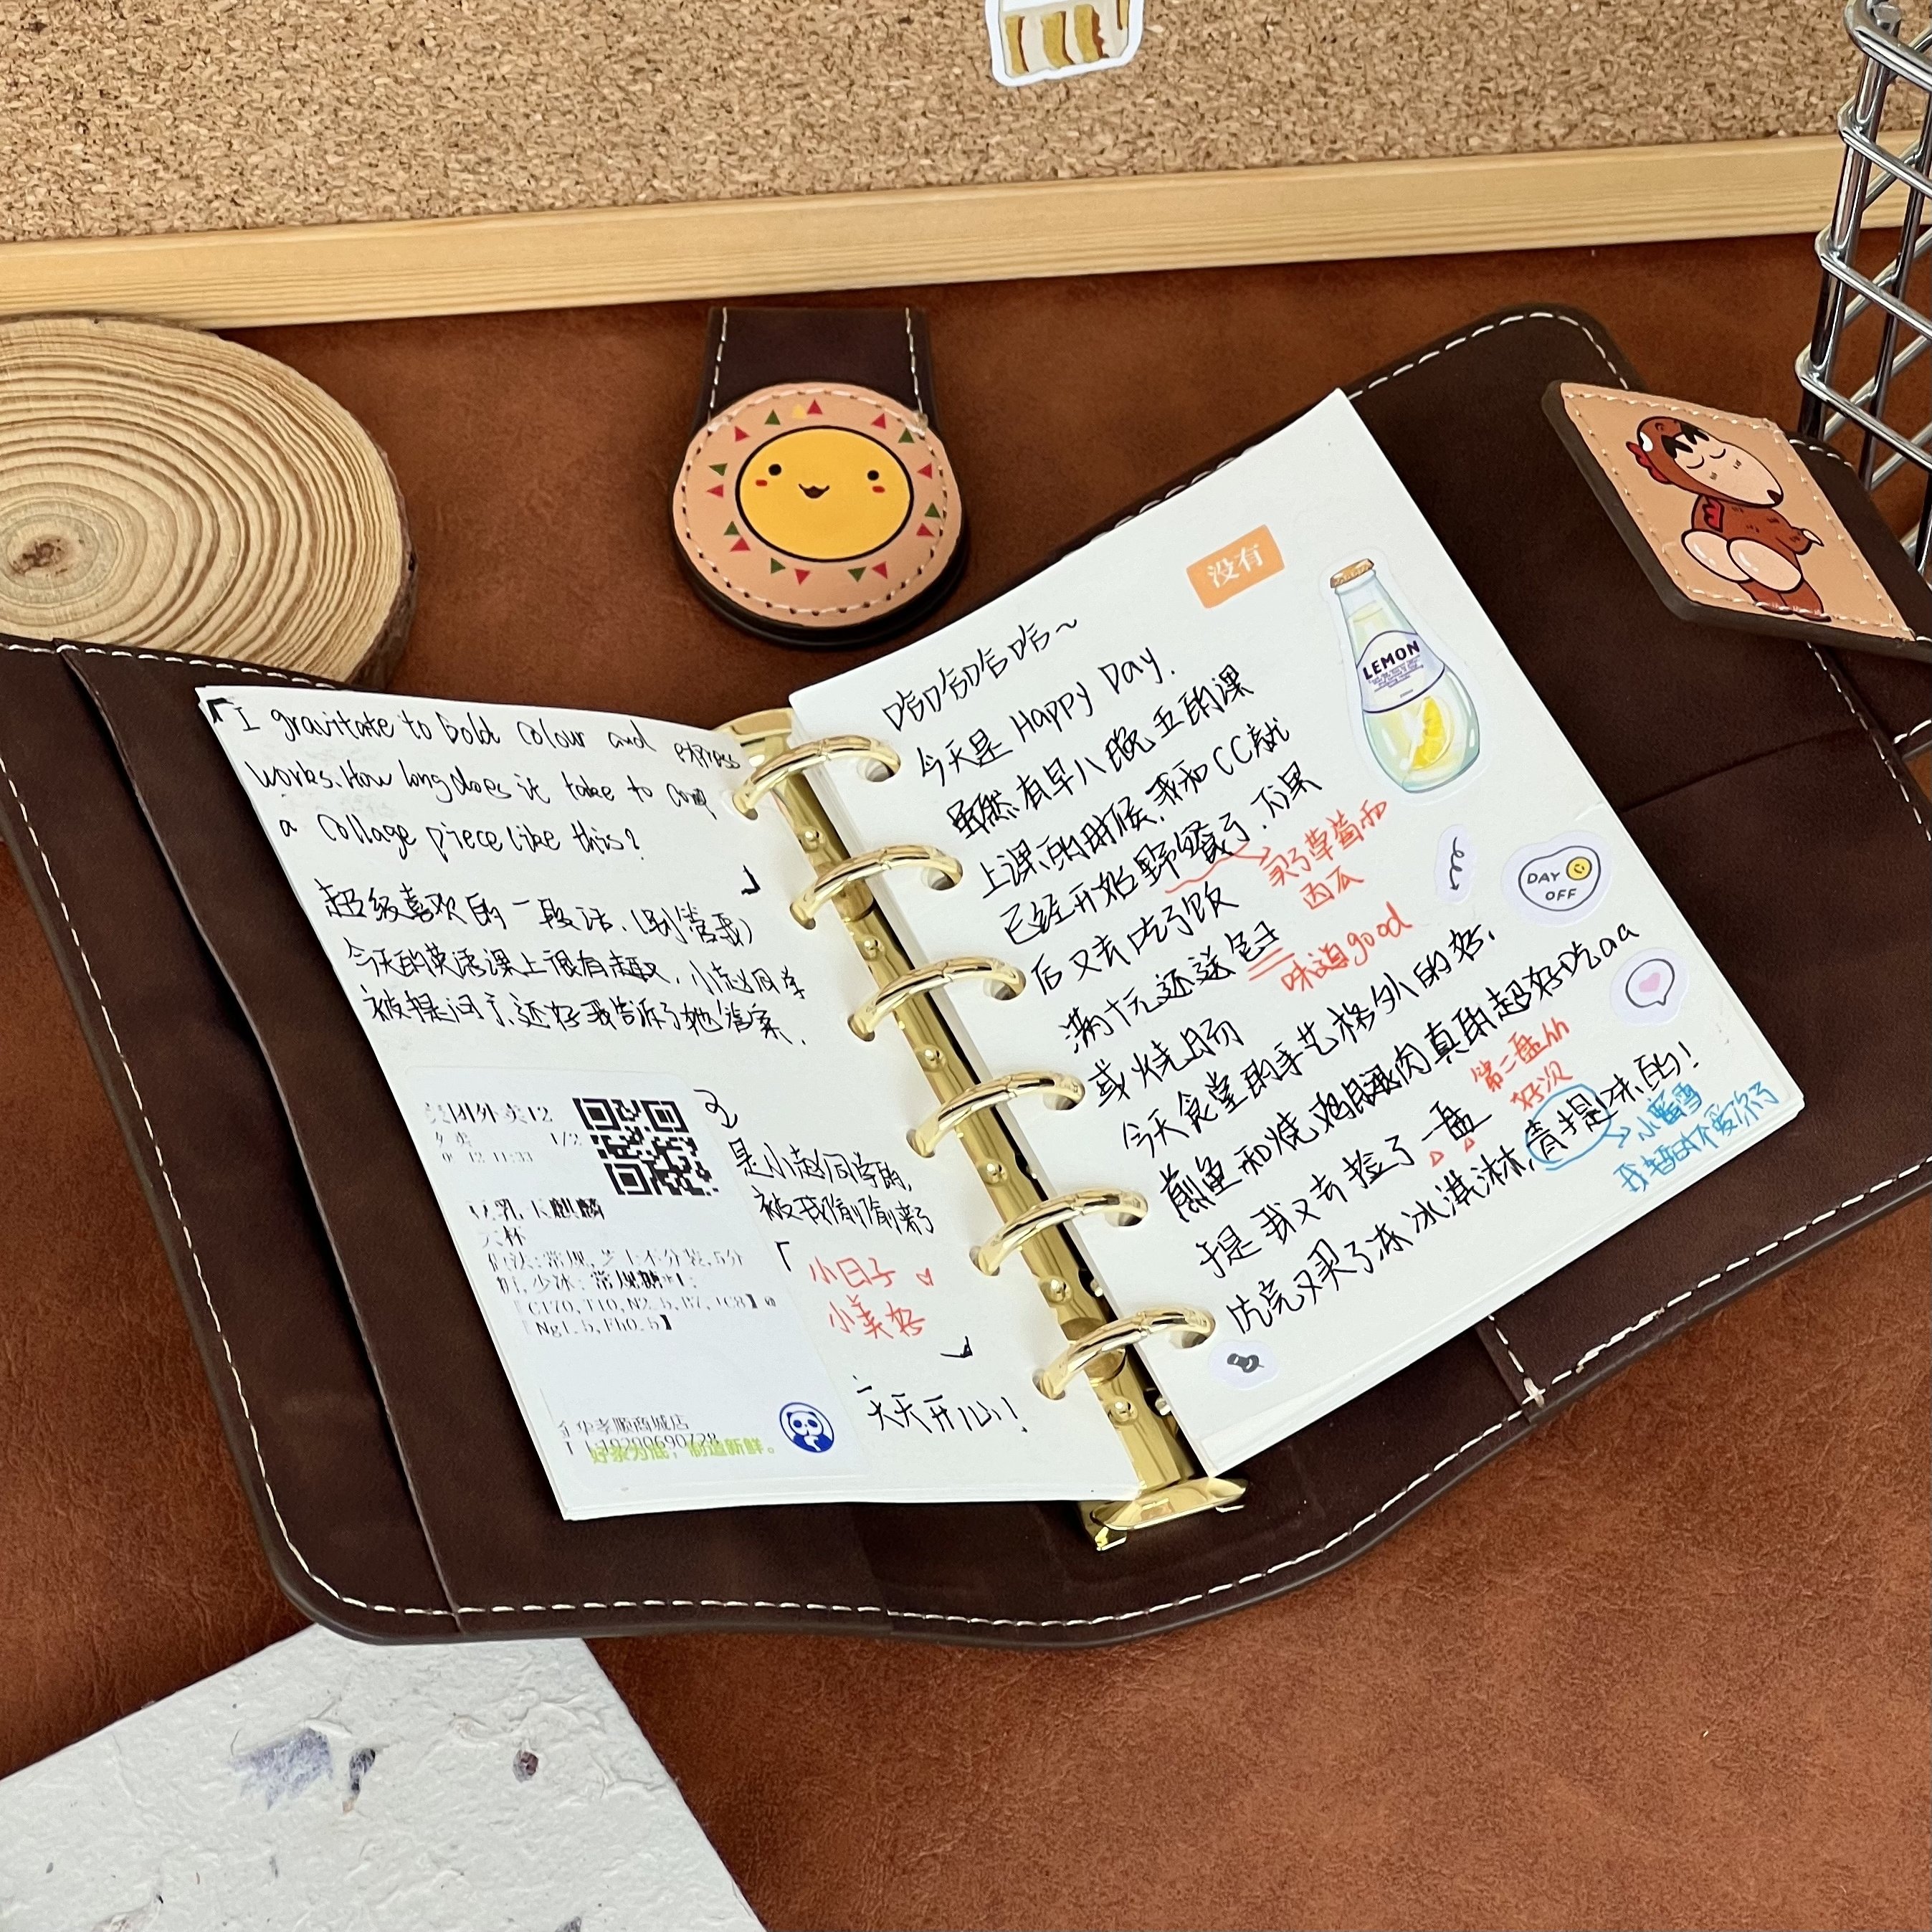 I gravitate to bold colour and express
works. How long does it take to
a collage piece like this?
超级喜欢的一段话.(别管我)
今天的英语课上很有趣, 小赵同学
被提问了, 还好我告诉了她答案.
美团外卖12
外卖 1/2
豆乳玉麒麟
大杯
做法:常规,芝士不分装,5分
糖,少冰;常规糖*1;
好茶为底,制造新鲜。
是小赵同学的,
被我偷偷来了
「小日子
小美好
」
天天开心!
没有
哈哈哈哈~
今天是 Happy Day.
虽然有早八晚五的课
上课的时候, 我和CC就
已经开始野餐了. 下课
买了草莓和
西瓜
后又去吃了饭
满十元还送包子
味道good
或烤肠
今天食堂的手艺格外的好.
煎鱼和烧鸡腿肉真的超好吃aa
于是我又去捡了一盘
第二盘hh
好次
吃完又买了冻冰淇淋, 青提味的!
小蜜雪
我暂时不爱你了
LEMON
DAY
OFF